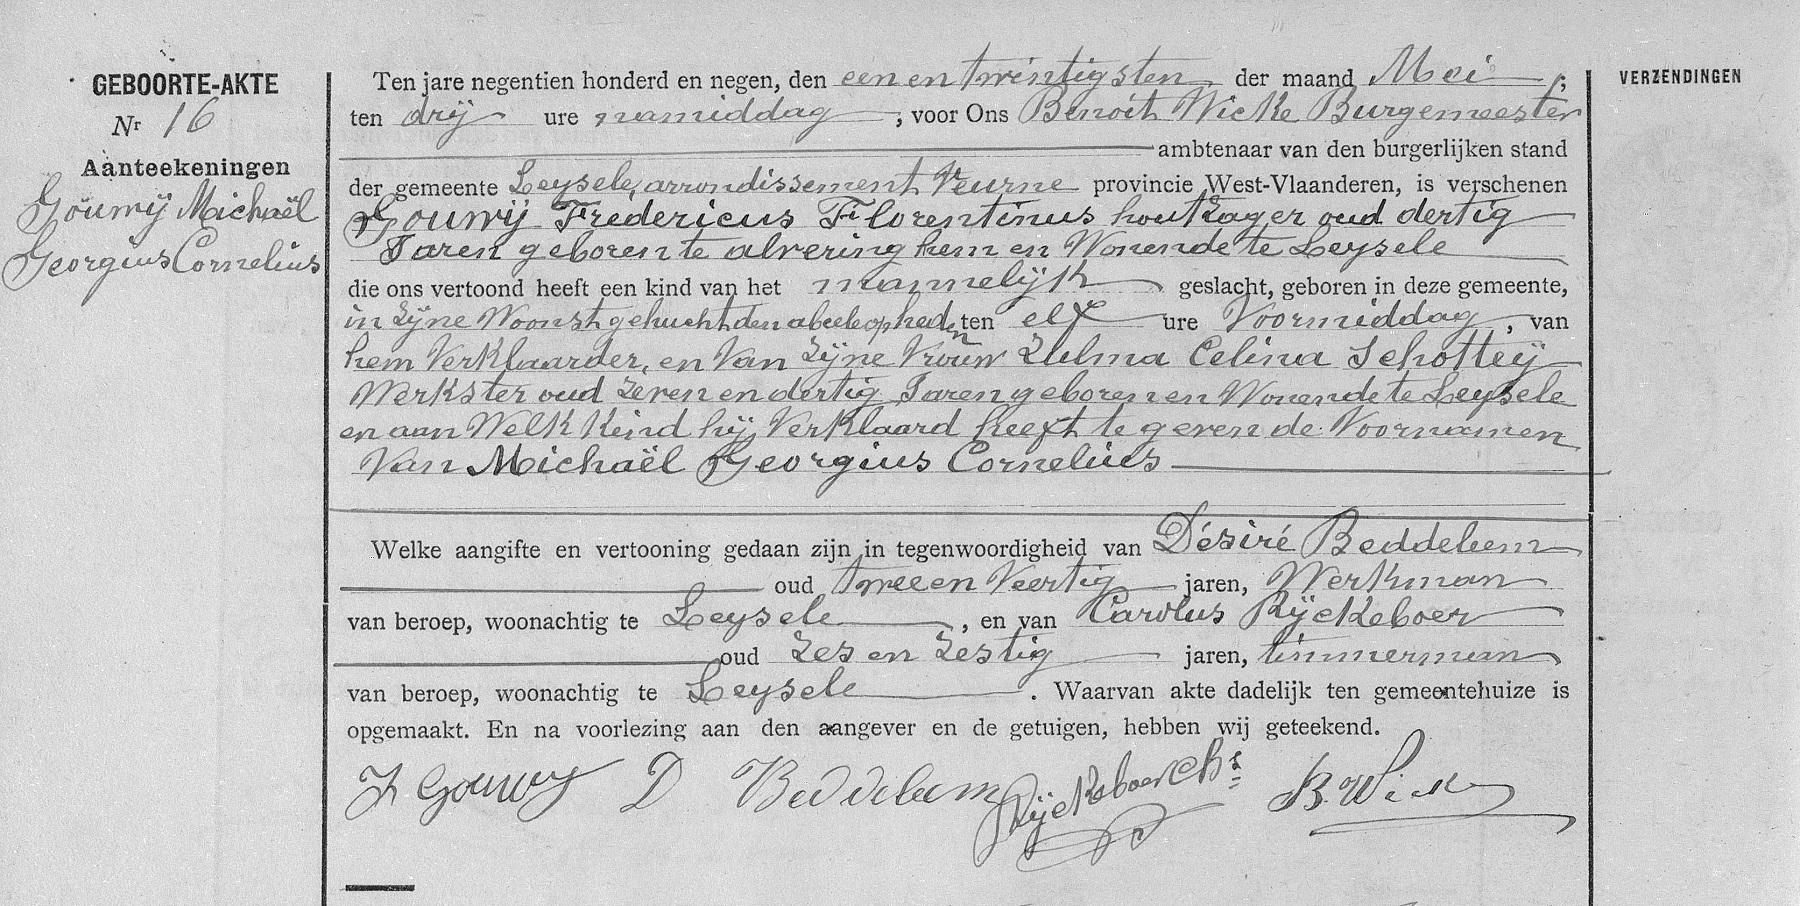 GEBOORTE-AKTE
Nr 16
Aanteekeningen
Gouwÿ Michaël
Georgius Cornelius
VERZENDINGEN
Ten jare negentien honderd en negen, den een en twintigsten der maand Mei,
ten drij ure namiddag, voor Ons Benoit Wicke Burgemeester
ambtenaar van den burgerlijken stand
der gemeente Leysele, arrondissement Veurne provincie West-Vlaanderen, is verschenen
Gouwÿ Frédericus Florentinus houtzager oud dertig
Jaren geboren te alveringhem en Wonende te Leysele
die ons vertoond heeft een kind van het mannelijk geslacht, geboren in deze gemeente,
in Zijne Woonst gehucht den abeele op heden ten elf ure Voormiddag, van
hem Verklaarder, en Van Zijne Vrouw Zulma Celina Schotteÿ
Werkster oud Zeven en dertig Jaren geboren en Wonende te Leysele
en aan Welk Keind hij Verklaard heeft te geven de Voornamen
Van Michaël Georgius Cornelius
Welke aangifte en vertooning gedaan zijn in tegenwoordigheid van Désiré Beddeleem
oud twee en Veertig jaren, Werkman
van beroep, woonachtig te Leysele, en van Carolus Rÿckeboer
oud Zes en Zestig jaren, timmerman
van beroep, woonachtig te Leysele. Waarvan akte dadelijk ten gemeentehuize is
opgemaakt. En na voorlezing aan den aangever en de getuigen, hebben wij geteekend.
F Gouwy D Beddeleem Rÿckeboer Chs B. Wicke